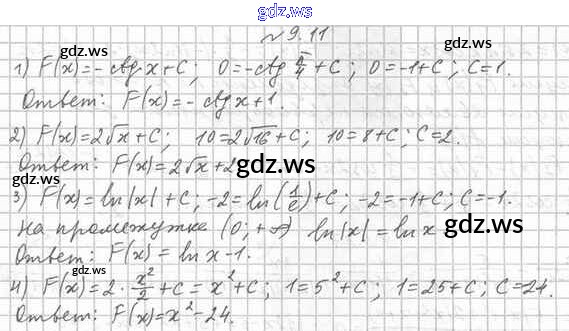 gdz.ws
№ 9.11
gdz.ws gdz.ws
1) F(x) = -ctg x + C; 0 = -ctg π/4 + C; 0 = -1 + C; C = 1.
Ответ: F(x) = -ctg x + 1.
2) F(x) = 2√x + C; 10 = 2√16 + C; 10 = 8 + C; C = 2.
Ответ: F(x) = 2√x + 2
gdz.ws
3) F(x) = ln|x| + C; -2 = ln(1/e) + C; -2 = -1 + C; C = -1.
На промежутке (0; +∞) ln|x| = ln x
gdz.ws
Ответ: F(x) = ln x - 1.
gdz.ws
4) F(x) = 2 · x²/2 + C = x² + C; 1 = 5² + C; 1 = 25 + C; C = 24.
Ответ: F(x) = x² - 24.
gdz.ws